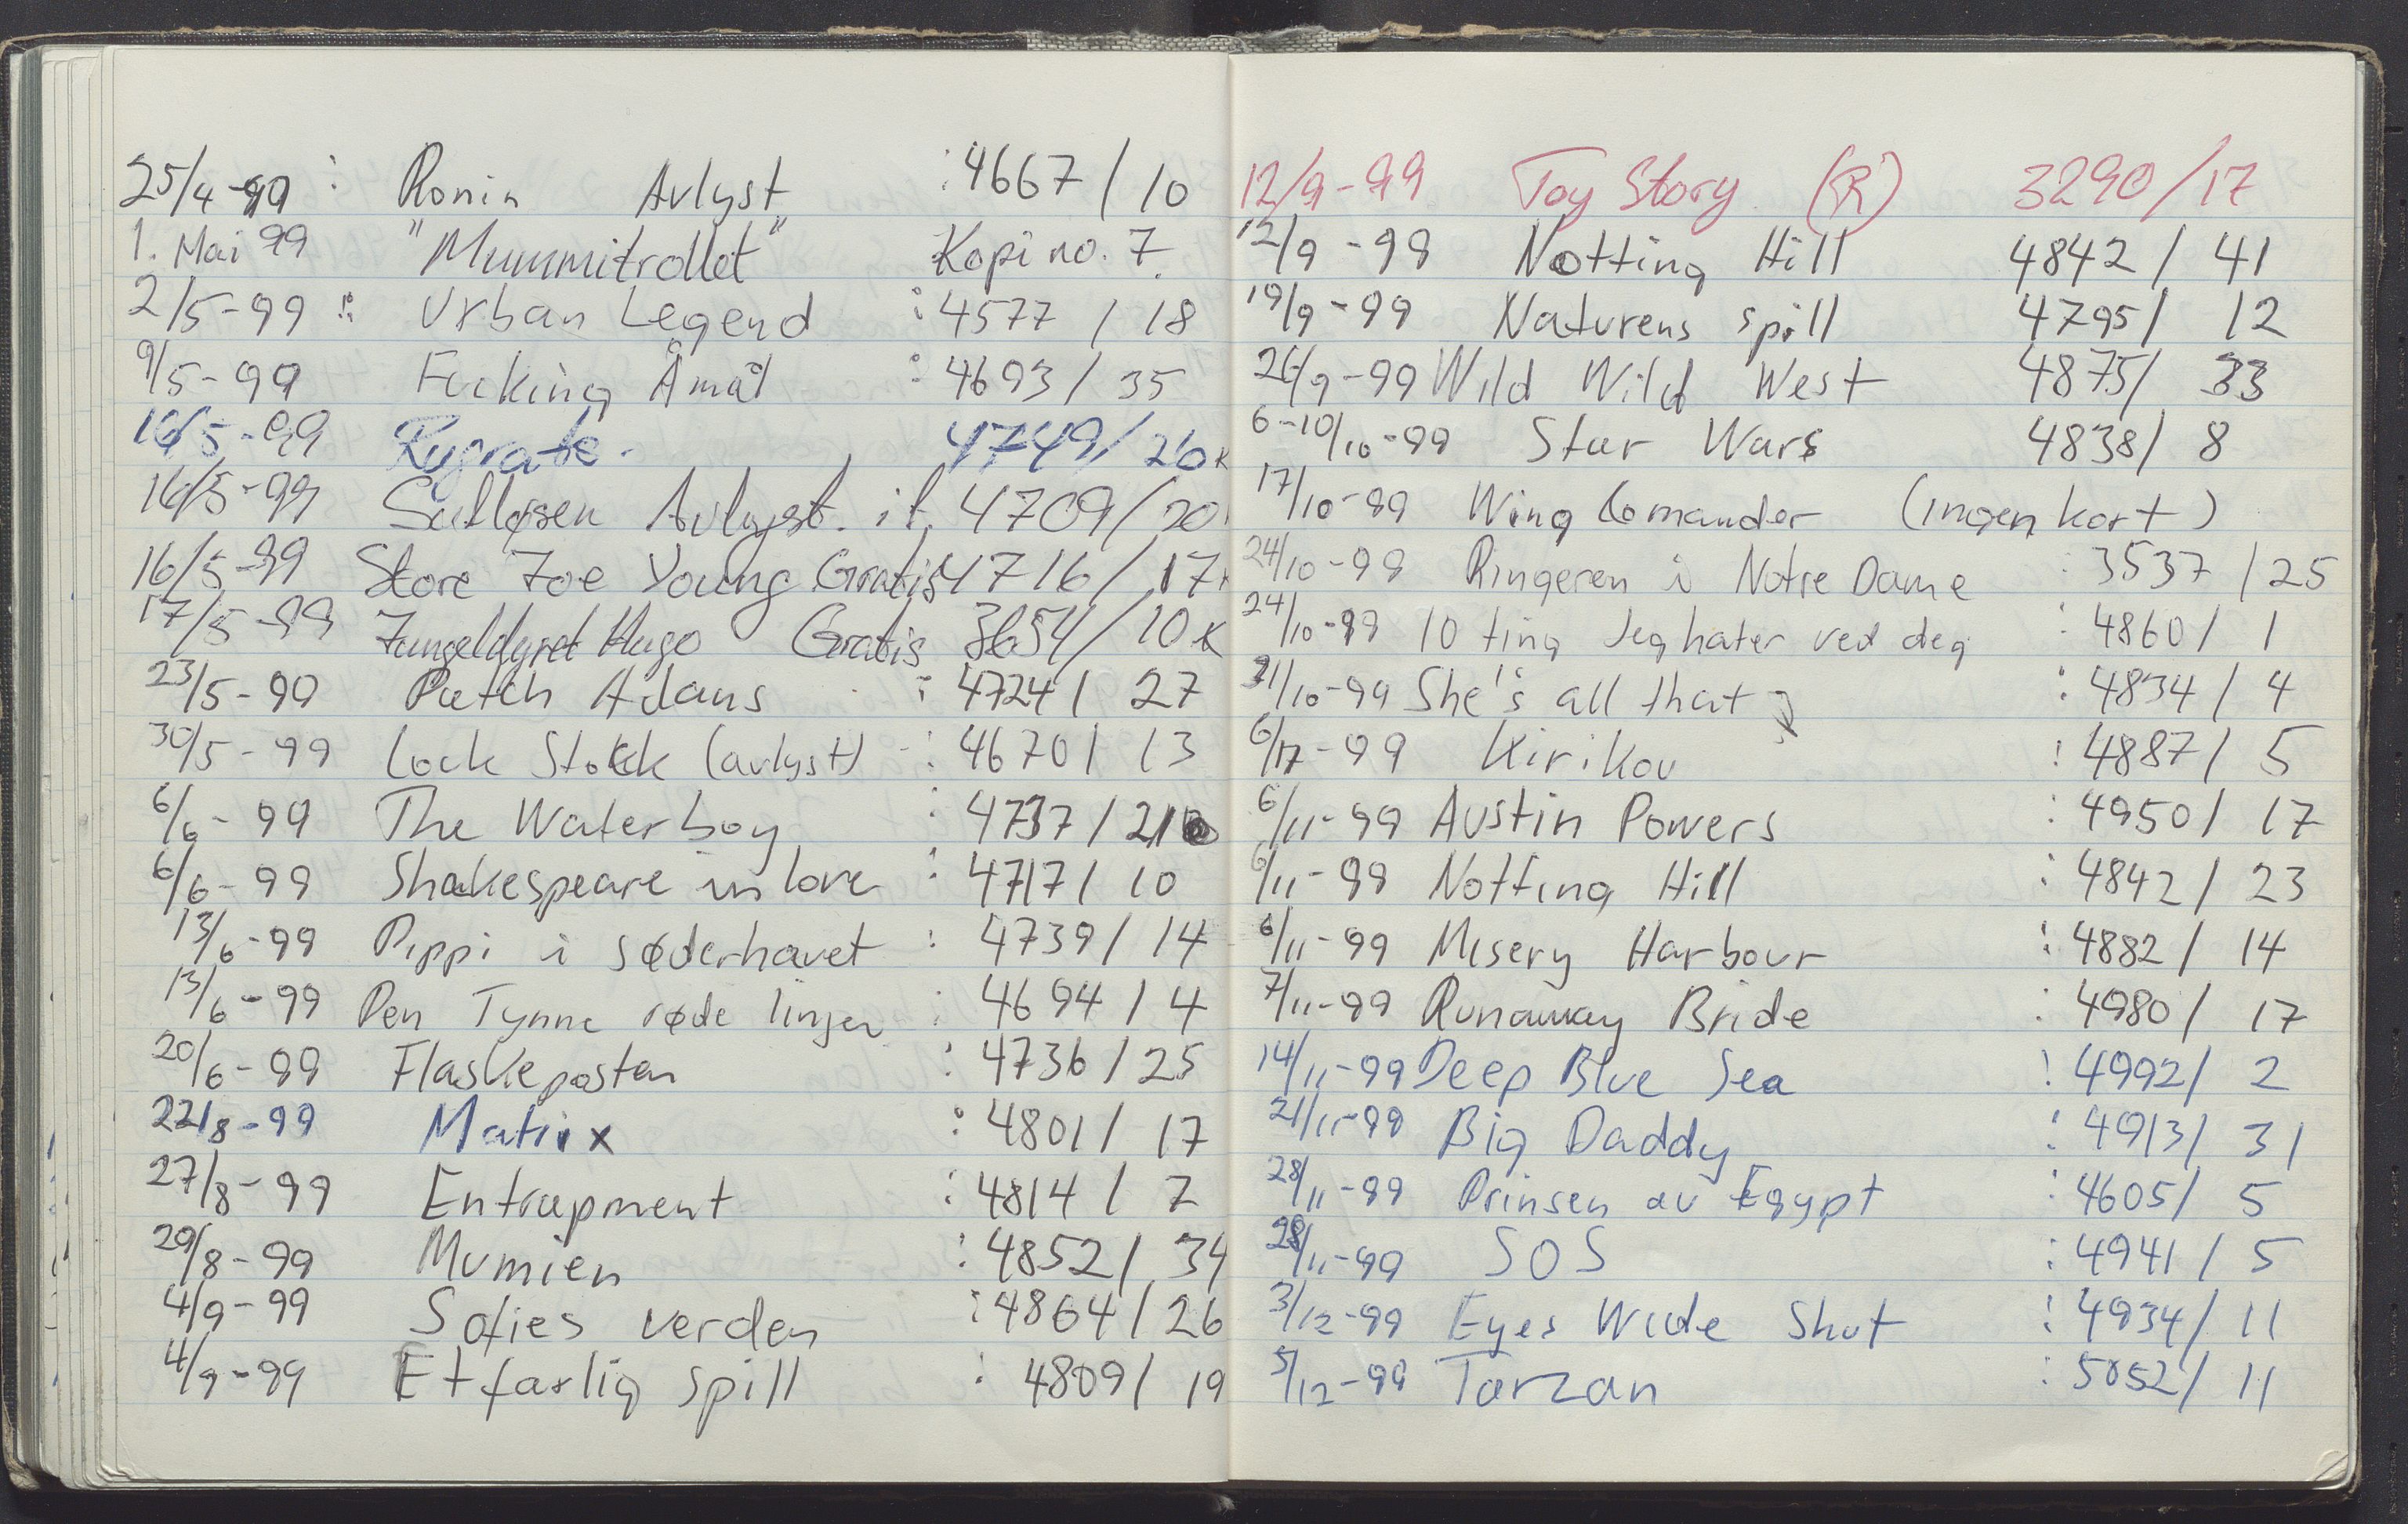 25/4-99 : Ronin Avlyst : 4667 / 10
1. Mai 99 "Mummitrollet" Kopi no. 7.
2/5-99 : Urban Legend : 4577 / 18
9/5-99 Fucking Åmål : 4693 / 35
16/5-99 Rugrats. 4749/ 26 x
16/5-99 Sutløsen Avlyst. it. 4709/20
16/5-99 Store Joe Young Gratis 4716/17x
17/5-99 Jungeldyret Hugo Gratis 3654/10 x
23/5-99 Patch Adams : 4724 / 27
30/5-99 Lock Stokk (avlyst) -: 4670 / 13
6/6-99 The Waterboy : 4737 / 21
6/6-99 Shakespeare in love : 4717 / 10
13/6-99 Pippi i søderhavet : 4739 / 14
13/6-99 Den Tynne røde linjen : 4694 / 4
20/6-99 Flaskeposten : 4736 / 25
22/8-99 Matrix : 4801 / 17
27/8-99 Entrapment : 4814 / 7
29/8-99 Mumien : 4852 / 34
4/9-99 Sofies verden : 4864 / 26
4/9-99 Et farlig spill : 4809 / 19
12/9-99 Toy Story (R) 3290/17
12/9-99 Notting Hill 4842 / 41
19/9-99 Naturens spill 4795 / 12
26/9-99 Wild Wild West 4875/ 33
6-10/10-99 Star Wars 4838/ 8
17/10-99 Wing Comander (ingen kort)
24/10-99 Ringeren i Notre Dame : 3537 / 25
24/10-99 10 ting Jeg hater ved deg : 4860 / 1
31/10-99 She's all that : 4834 / 4
6/11-99 Kirikou : 4887 / 5
6/11-99 Austin Powers : 4950 / 17
6/11-99 Notting Hill : 4842 / 23
6/11-99 Misery Harbour : 4882 / 14
7/11-99 Runaway Bride : 4980 / 17
14/11-99 Deep Blue Sea : 4992 / 2
21/11-99 Big Daddy : 4913 / 31
28/11-99 Prinsen av Egypt : 4605 / 5
28/11-99 SOS : 4941 / 5
3/12-99 Eyes Wide Shut : 4934 / 11
5/12-99 Tarzan : 5052 / 11